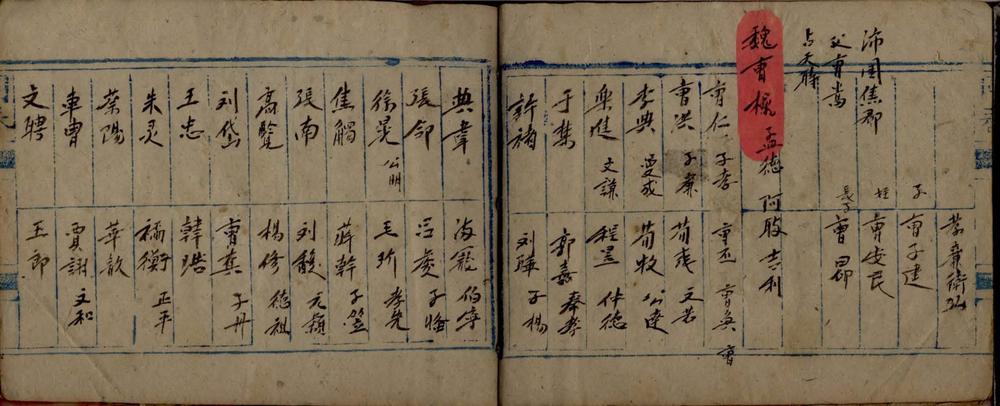 沛国焦郡
父曹嵩
占天時
魏曹操 孟德 阿股吉利
子 曹子建
姪 曹安民
長子 曹昂
曹仁 子孝 曹丕 曹奂 曹
曹洪 子廉 荀彧 文若
李典 曼成 荀攸 公達
樂進 文謙 程昱 仲德
于禁 郭嘉 奉孝
許褚 刘曄 子楊
典韋 滿寵 伯寧
張郃 吕虔 子恪
徐晃 公明 毛玠 孝先
焦觸 蔣幹 子翌
張南 刘馥 元穎
高覽 楊修 德祖
刘岱 曹真 子丹
王忠 韓浩
朱灵 禰衡 正平
蔡陽 華歆
車胄 賈詡 文和
文聘 王郎